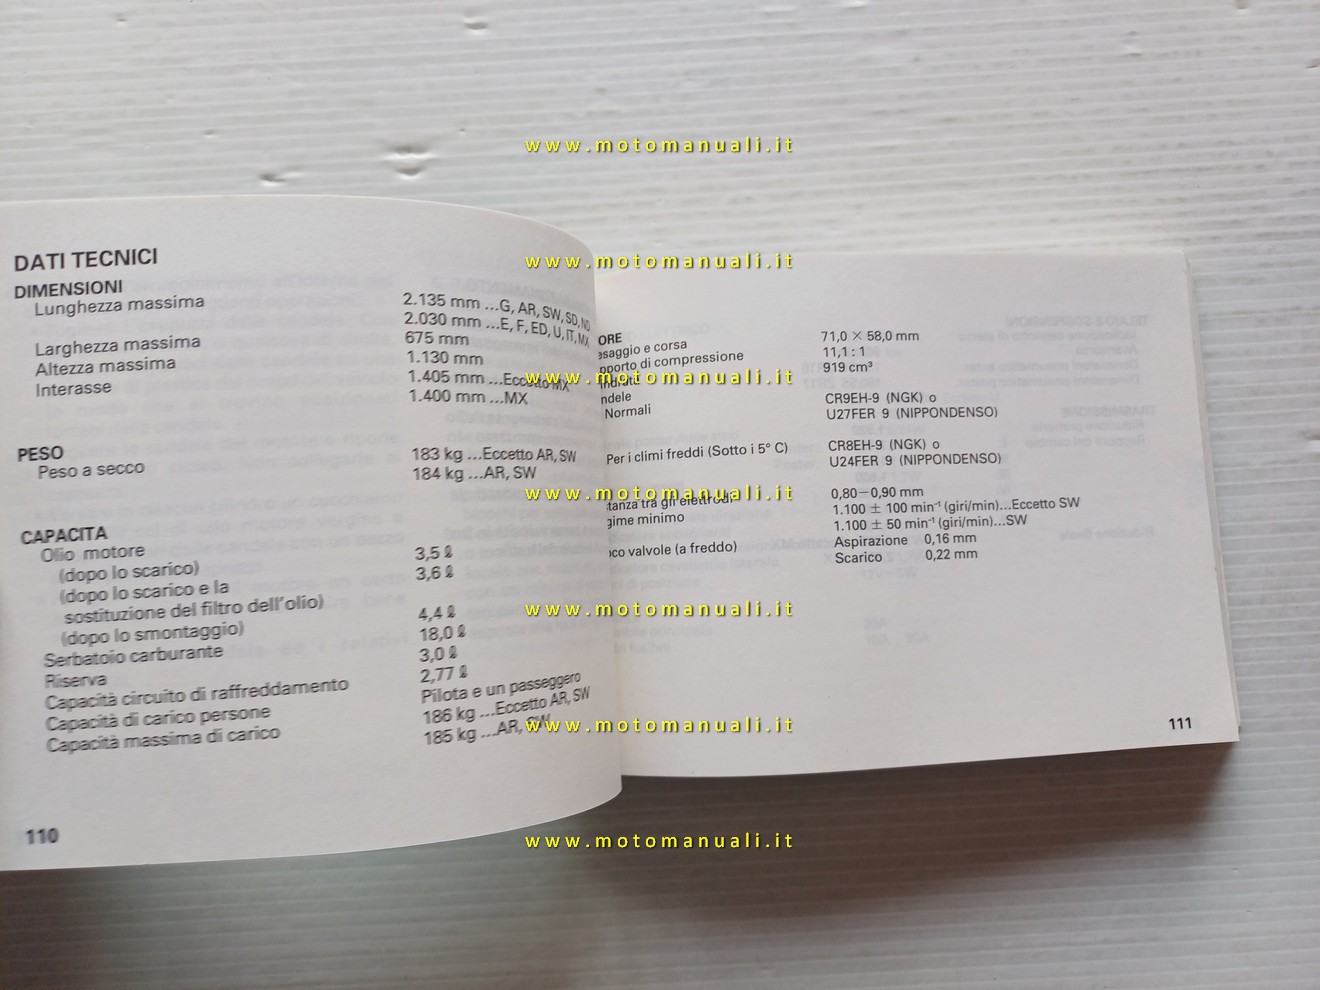 www.motomanuali.it
DATI TECNICI
DIMENSIONI
Lunghezza massima 2.135 mm ...G, AR, SW, SD, ND
2.030 mm ...E, F, ED, U, IT, MX
Larghezza massima 675 mm
Altezza massima 1.130 mm
Interasse 1.405 mm ...Eccetto MX
1.400 mm ...MX
PESO
Peso a secco 183 kg ...Eccetto AR, SW
184 kg ...AR, SW
CAPACITA
Olio motore
(dopo lo scarico) 3,5 ℓ
(dopo lo scarico e la 3,6 ℓ
sostituzione del filtro dell'olio)
(dopo lo smontaggio) 4,4 ℓ
Serbatoio carburante 18,0 ℓ
Riserva 3,0 ℓ
Capacità circuito di raffreddamento 2,77 ℓ
Capacità di carico persone Pilota e un passeggero
Capacità massima di carico 186 kg ...Eccetto AR, SW
185 kg ...AR, SW
110
www.motomanuali.it
ORE
esaggio e corsa 71,0 × 58,0 mm
pporto di compressione 11,1 : 1
indrata 919 cm³
www.motomanuali.it
ndele
Normali CR9EH-9 (NGK) o
U27FER 9 (NIPPONDENSO)
Per i climi freddi (Sotto i 5° C) CR8EH-9 (NGK) o
U24FER 9 (NIPPONDENSO)
www.motomanuali.it
tanza tra gli elettrodi 0,80—0,90 mm
gime minimo 1.100 ± 100 min⁻¹ (giri/min)...Eccetto SW
1.100 ± 50 min⁻¹ (giri/min)...SW
oco valvole (a freddo) Aspirazione 0,16 mm
Scarico 0,22 mm
www.motomanuali.it
www.motomanuali.it
111
www.motomanuali.it